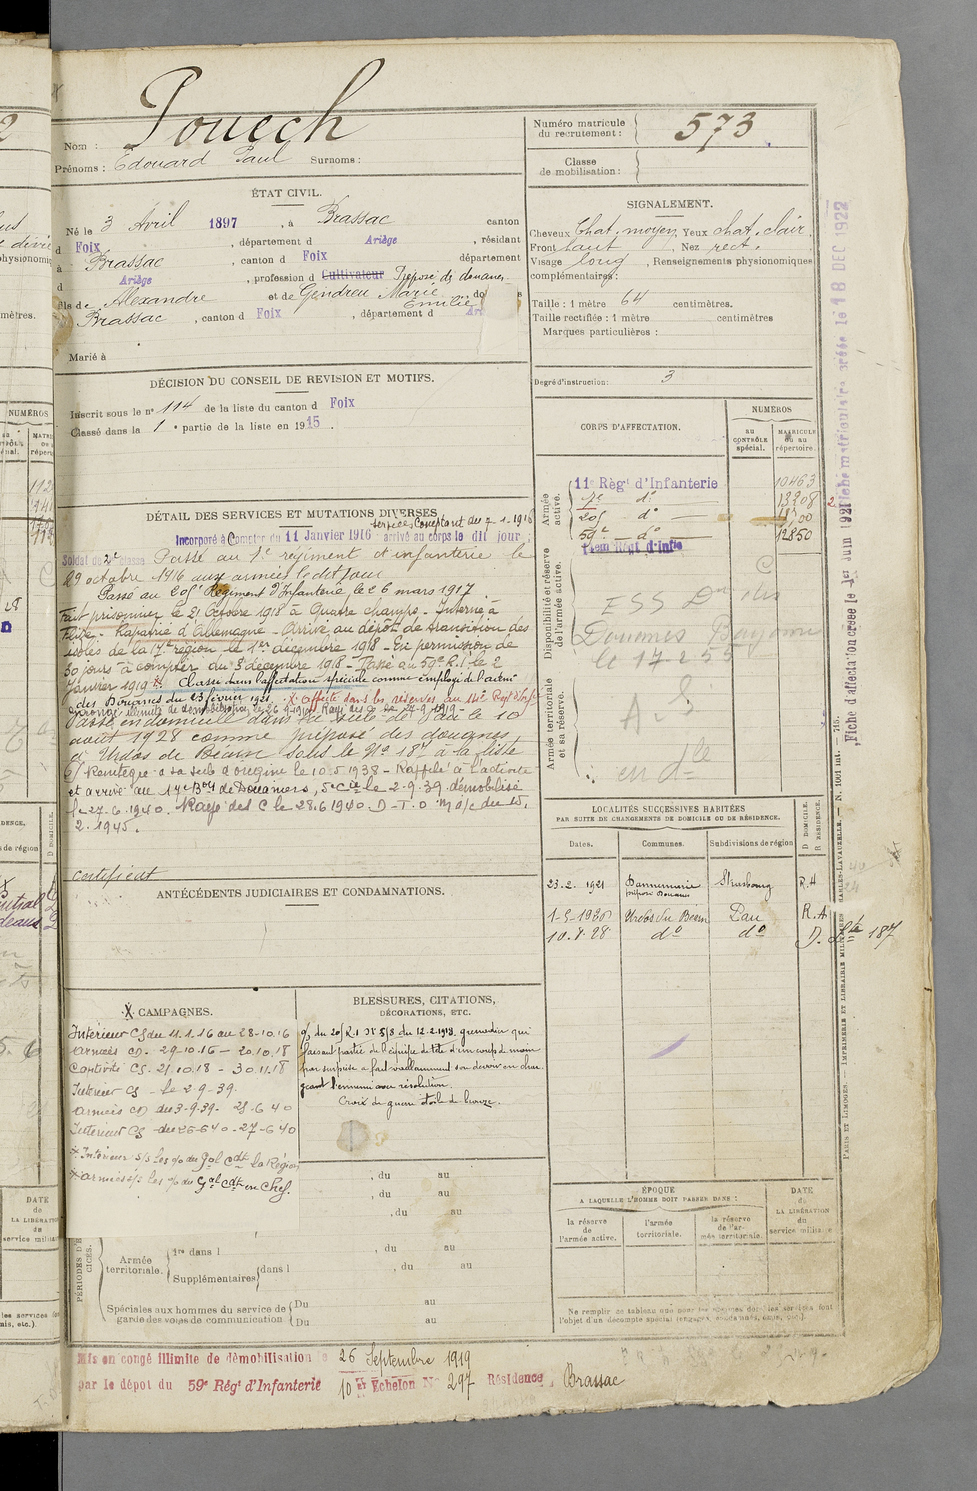 Pouech
Nom :
Prénoms : Edouard Paul Surnoms :
Numéro matricule du recrutement : 573
Classe de mobilisation :
ÉTAT CIVIL.
Né le 3 Avril 1897, à Brassac canton
d Foix, département d Ariège, résidant
à Brassac, canton d Foix département
d Ariège, profession d Cultivateur Préposé de douanes
fils de Alexandre et de Gendreu Marie Emilie do s
Brassac, canton d Foix, département d Ari
Marié à
SIGNALEMENT.
Cheveux chat. moyen, Yeux chat. clair,
Front haut, Nez rect.
Visage long, Renseignements physionomiques
complémentaires :
Taille : 1 mètre 64 centimètres.
Taille rectifiée : 1 mètre centimètres
Marques particulières :
Degré d'instruction : 3
DÉCISION DU CONSEIL DE REVISION ET MOTIFS.
Inscrit sous le n° 114 de la liste du canton d Foix
Classé dans la 1e partie de la liste en 1915.
CORPS D'AFFECTATION.
NUMÉROS
au CONTRÔLE spécial.
MATRICULE ou au répertoire.
Armée active.
11e Régt d'Infanterie 10463
1e do 13208
205 do
59e do 12850
14eme Régt d'Infie
Disponibilité et réserve de l'armée active.
Douanes Bayonne
le 17 2 55
Armée territoriale et sa réserve.
A. S
DÉTAIL DES SERVICES ET MUTATIONS DIVERSES
Services Comptant du 7-1-1916
Incorporé à Compter du 11 Janvier 1916 arrivé au corps le dit jour ;
Soldat de 2e classe Passé au 1e régiment d'infanterie le
29 octobre 1916 aux armées le dit jour
Passé au 205e Régiment d'Infanterie le 26 mars 1917.
Fait prisonnier le 21 Octobre 1918 à Quatre champs - Interné à
- Rapatrié d'Allemagne - Arrivé au dépôt de transition des
isolés de la 17e région le 1er décembre 1918 - En permission de
30 jours à compter du 3 décembre 1918 - Passé au 59e R.I. le 2
janvier 1919. Classé dans l'affectation spéciale comme employé de l'adm
des Douanes du 23 février 1921. X affecté dans les réserves au 14e Regt d'Infie
en congé illimité de démobilisation le 26-9-1919
Passé en domicile dans la subd de Pau le 10
août 1928 comme préposé des douanes
à Urdos de Béarn sous le No 187 à la liste
Réintégré à sa sub d'origine le 10.5.1938 - Rappelé à l'activité
et arrivé au 17e Bon de Douaniers, 5e Cie le 2.9.39 démobilisé
le 27.6.1940. Rayé des C le 28.6.1940. D-T.O M d/c du 15.
2.1945.
certificat
ANTÉCÉDENTS JUDICIAIRES ET CONDAMNATIONS.
LOCALITÉS SUCCESSIVES HABITÉES
PAR SUITE DE CHANGEMENTS DE DOMICILE OU DE RÉSIDENCE.
Dates. Communes. Subdivisions de région D DOMICILE. R RÉSIDENCE.
23.2.1921 Dannemarie préposé Douanes Strasbourg R.A
1-5-1930 Urdos du Béarn Pau R.A
10.8.28 do do D. Lte 187
X CAMPAGNES.
Intérieur CS du 11.1.16 au 28-10.16
armées CD. 29-10.16 - 20.10.18
Captivité CS. 21.10.18 - 30.11.18
Intérieur CS - le 2-9-39.
armées CD du 3-9-39. 25-6 40
Intérieur CS du 26-6 40 - 27-6 40
X Intérieur s/s les o/ du Gal Cdt la Région
X armées s/s les o/ du Gal Cdt en Chef.
BLESSURES, CITATIONS,
DÉCORATIONS, ETC.
o/ du 205 R.I No 518 du 12.2.1918. grenadier qui
faisant partie de l'équipe de tête d'un coup de main
par surprise a fait vaillamment son devoir en char
geant l'ennemi avec résolution.
Croix de guerre étoile de bronze.
, du au
, du au
, du au
PÉRIODES D'EXERCICES.
Armée territoriale. 1re dans l , du au
Supplémentaires dans l , du au
Spéciales aux hommes du service de garde des voies de communication Du au
Du au
ÉPOQUE
A LAQUELLE L'HOMME DOIT PASSER DANS :
la réserve de l'armée active.
l'armée territoriale.
la réserve de l'armée territoriale.
DATE de LA LIBÉRATION du service militaire
Ne remplir ce tableau que pour les hommes dont les services font
l'objet d'un décompte spécial (engagés, condamnés, omis, etc.).
Mis en congé illimité de démobilisation le 26 Septembre 1919
par le dépôt du 59e Régt d'Infanterie 10 er Echelon No 297 Résidence Brassac
Fiche matriculaire créée le 18 DEC 1922
Fiche d'affectation créée le 1er Juin 1921
PARIS ET LIMOGES. — IMPRIMERIE ET LIBRAIRIE MILITAIRES CHARLES-LAVAUZELLE. — N. 1001 int. — 716.